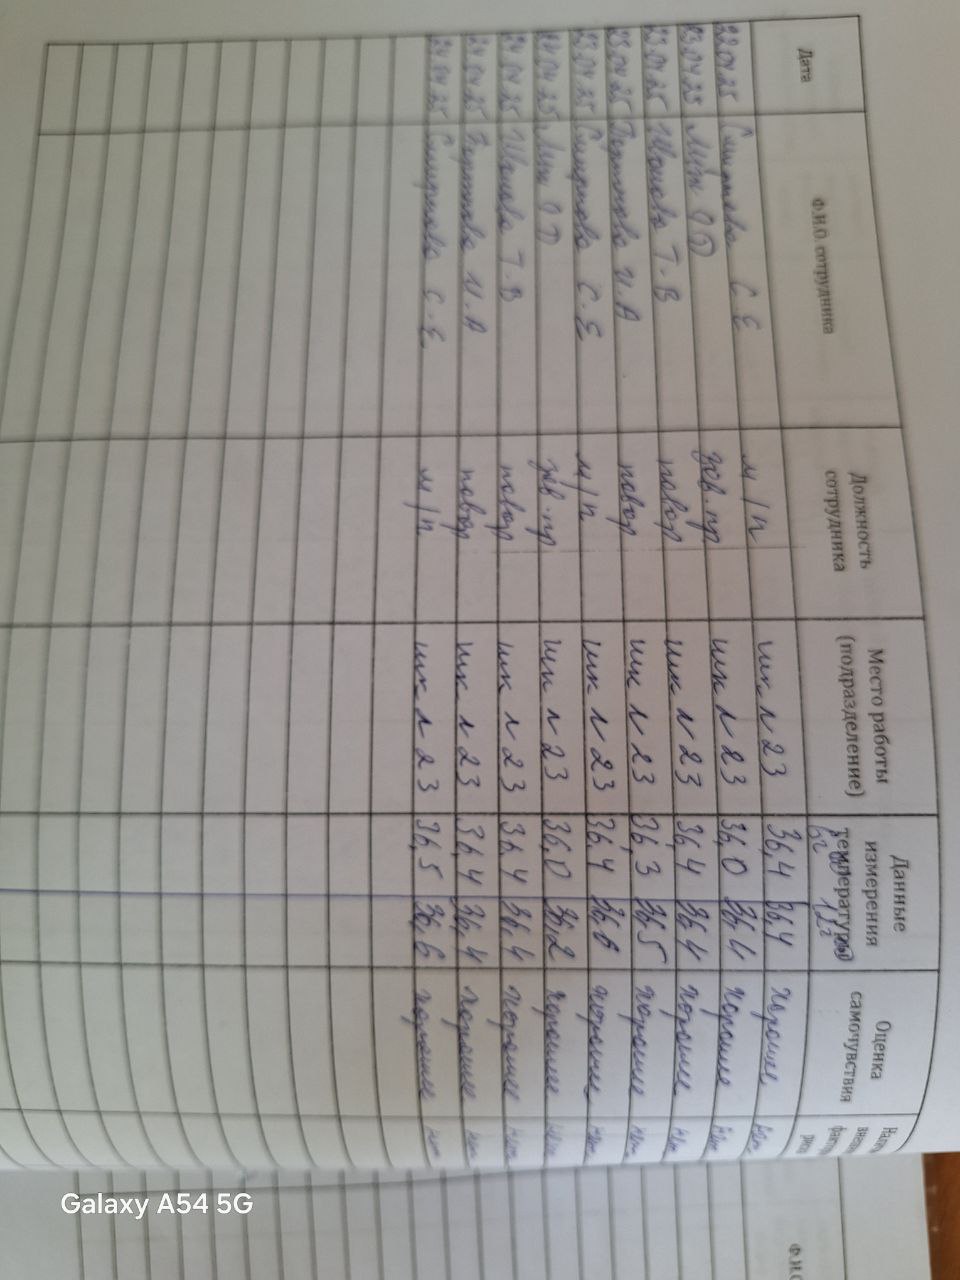 Дата Ф.И.О. сотрудника Должность сотрудника Место работы (подразделение) Данные измерения температуры Оценка самочувствия
22.04.25 С.Е м/п шк л 23 36,4 36,4 хорошее
23.04.25 зав.пр шк л 23 36,0 36,4 хорошее
23.04.25 Т.В повар шк л 23 36,4 36,4 хорошее
23.04.25 И.А повар шк л 23 36,3 36,5 хорошее
23.04.25 Смирнова С.Е м/п шк л 23 36,4 36,6 хорошее
24.04.25 зав.пр шк л 23 36,0 36,2 хорошее
24.04.25 Т.В повар шк л 23 36,4 36,4 хорошее
24.04.25 И.А повар шк л 23 36,4 36,4 хорошее
24.04.25 Смирнова С.Е м/п шк л 23 36,5 36,6 хорошее
Ф.И.О
Galaxy A54 5G